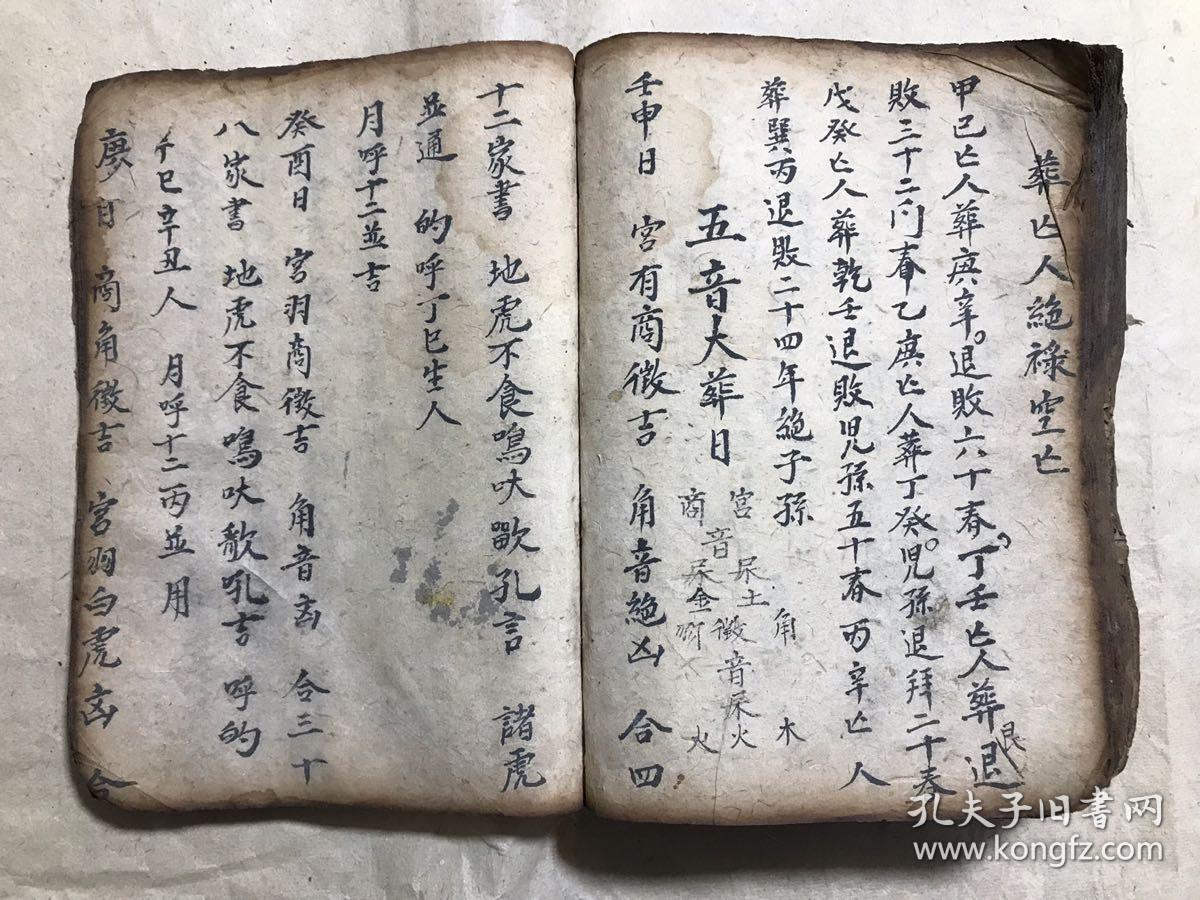 葬亡人絶祿空亡
甲己亡人葬庚辛。退敗六十春，丁壬亡人葬退
敗三十二 春乙庚亡人葬丁癸。児孫退拜二十春
戊癸亡人葬乾壬退敗児孫五十春丙辛亡人
葬巽丙退敗二十四年絶子孫
五音大葬日
宮音屎土 角木
商屎金 徵音屎火
火
壬申日 宮有商徵吉 角音絶凶 合四
十二家書 地虎不食鳴吠 孔言 諸虎
並通 的呼丁巳生人
月呼十二並吉
癸酉日 宮羽商徵吉 角音凶 合三十
八家書 地虎不食鳴吠 吼吉 呼的
巳辛丑人 月呼十二丙並用
日 商角徵吉 宮羽白虎凶 合
孔夫子旧书网
www.kongfz.com